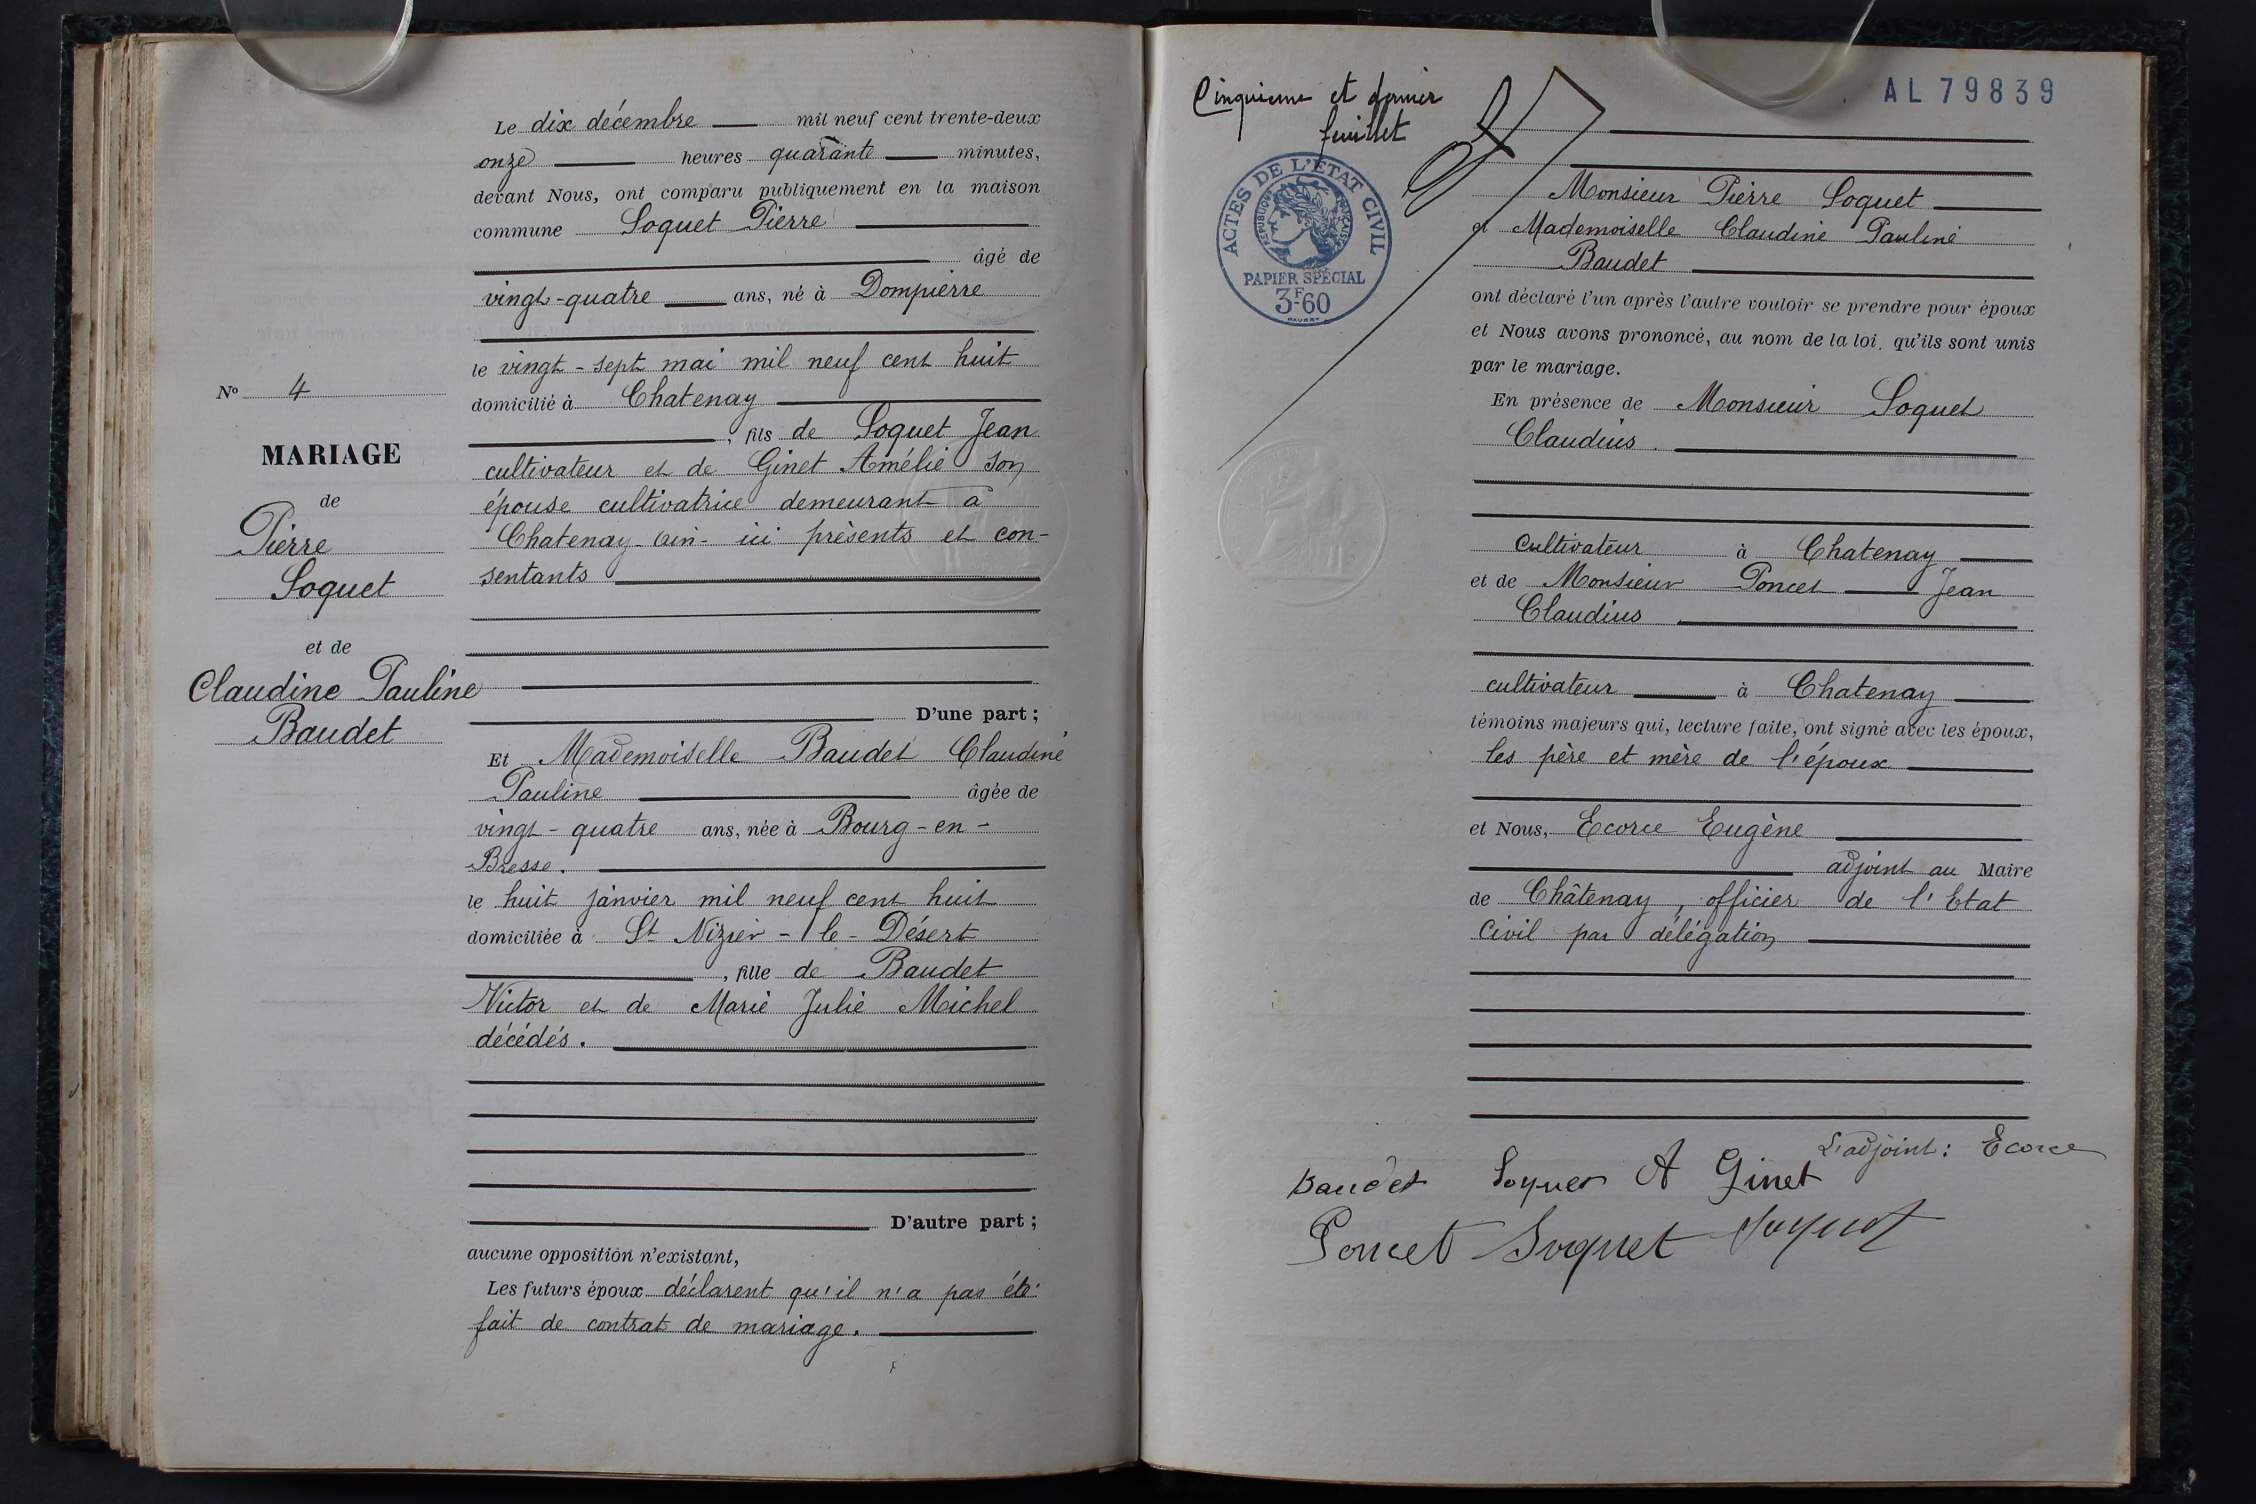 Le dix décembre mil neuf cent trente-deux
onze heures quarante minutes,
devant Nous, ont comparu publiquement en la maison
commune Soquet Pierre
âgé de
vingt-quatre ans, né à Dompierre
le vingt-sept mai mil neuf cent huit
domicilié à Chatenay
, fils de Soquet Jean
cultivateur et de Ginet Amélie son
épouse cultivatrice demeurant à
Chatenay-Ain- ici présents et con-
sentants
D'une part ;
Et Mademoiselle Baudet Claudine
Pauline âgée de
vingt-quatre ans, née à Bourg-en-
Bresse.
le huit janvier mil neuf cent huit
domiciliée à St Nizier-le-Désert
, fille de Baudet
Victor et de Marie Julie Michel
décédés.
D'autre part ;
aucune opposition n'existant,
Les futurs époux déclarent qu'il n'a pas été
fait de contrat de mariage.
No 4
MARIAGE
de
Pierre
Soquet
et de
Claudine Pauline
Baudet
Cinquième et dernier
feuillet
AL 79839
ACTES DE L'ÉTAT CIVIL
RÉPUBLIQUE FRANÇAISE
PAPIER SPÉCIAL
3F-60
Monsieur Pierre Soquet
et Mademoiselle Claudine Pauline
Baudet
ont déclaré l'un après l'autre vouloir se prendre pour époux
et Nous avons prononcé, au nom de la loi, qu'ils sont unis
par le mariage.
En présence de Monsieur Soquet
Claudius.
cultivateur à Chatenay
et de Monsieur Poncet Jean
Claudius
cultivateur à Chatenay
témoins majeurs qui, lecture faite, ont signé avec les époux,
les père et mère de l'époux
et Nous, Ecorce Eugène
adjoint au Maire
de Châtenay, officier de l'Etat
Civil par délégation
L'adjoint : Ecorce
Baudet Soquet A Ginet
Poncet Soquet Soquet